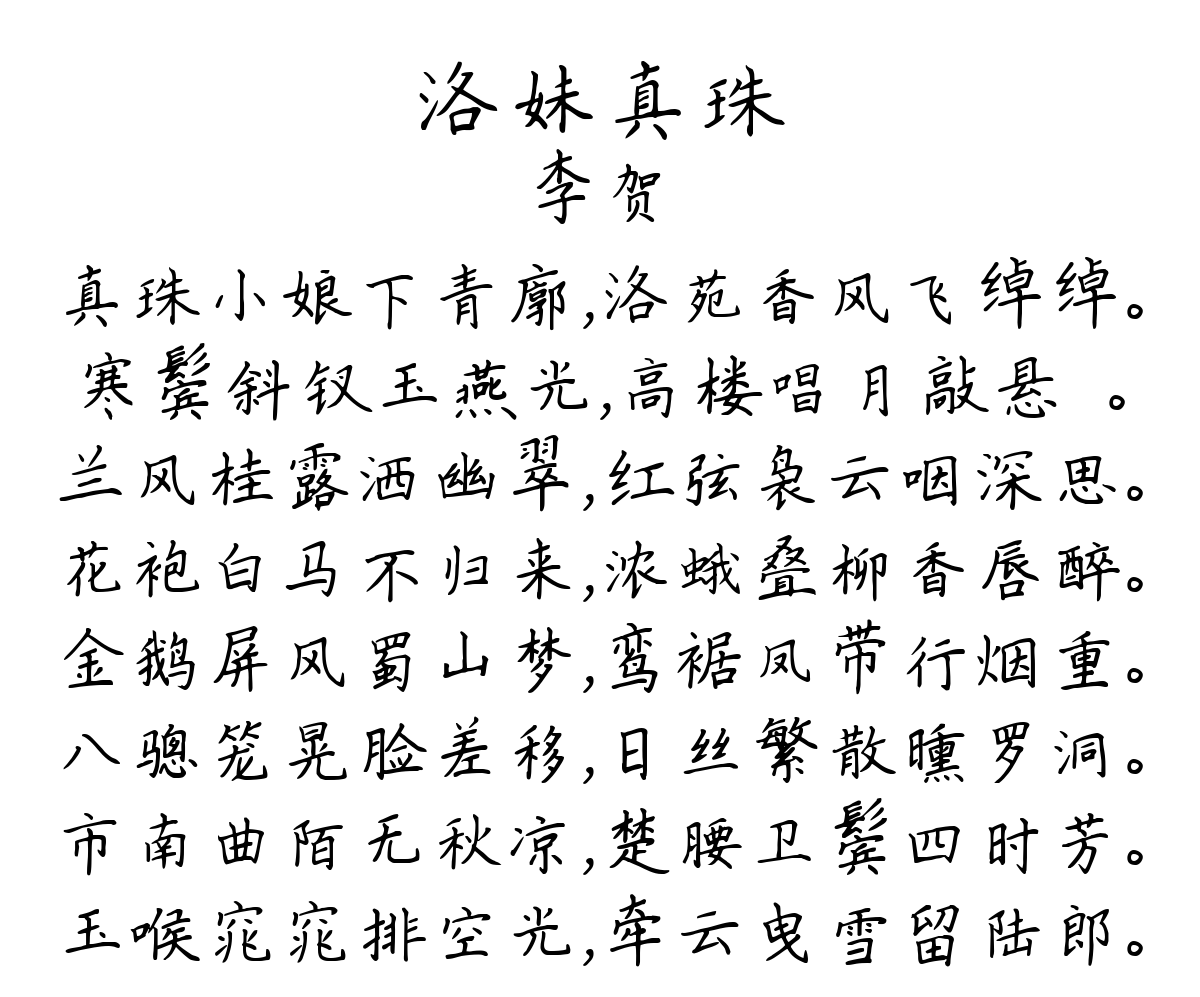 洛妹真珠
李贺
真珠小娘下青廓,洛苑香风飞绰绰。
寒鬓斜钗玉燕光,高楼唱月敲悬 。
兰风桂露洒幽翠,红弦袅云咽深思。
花袍白马不归来,浓蛾叠柳香唇醉。
金鹅屏风蜀山梦,鸾裾凤带行烟重。
八骢笼晃脸差移,日丝繁散曛罗洞。
市南曲陌无秋凉,楚腰卫鬓四时芳。
玉喉窕窕排空光,牵云曳雪留陆郎。